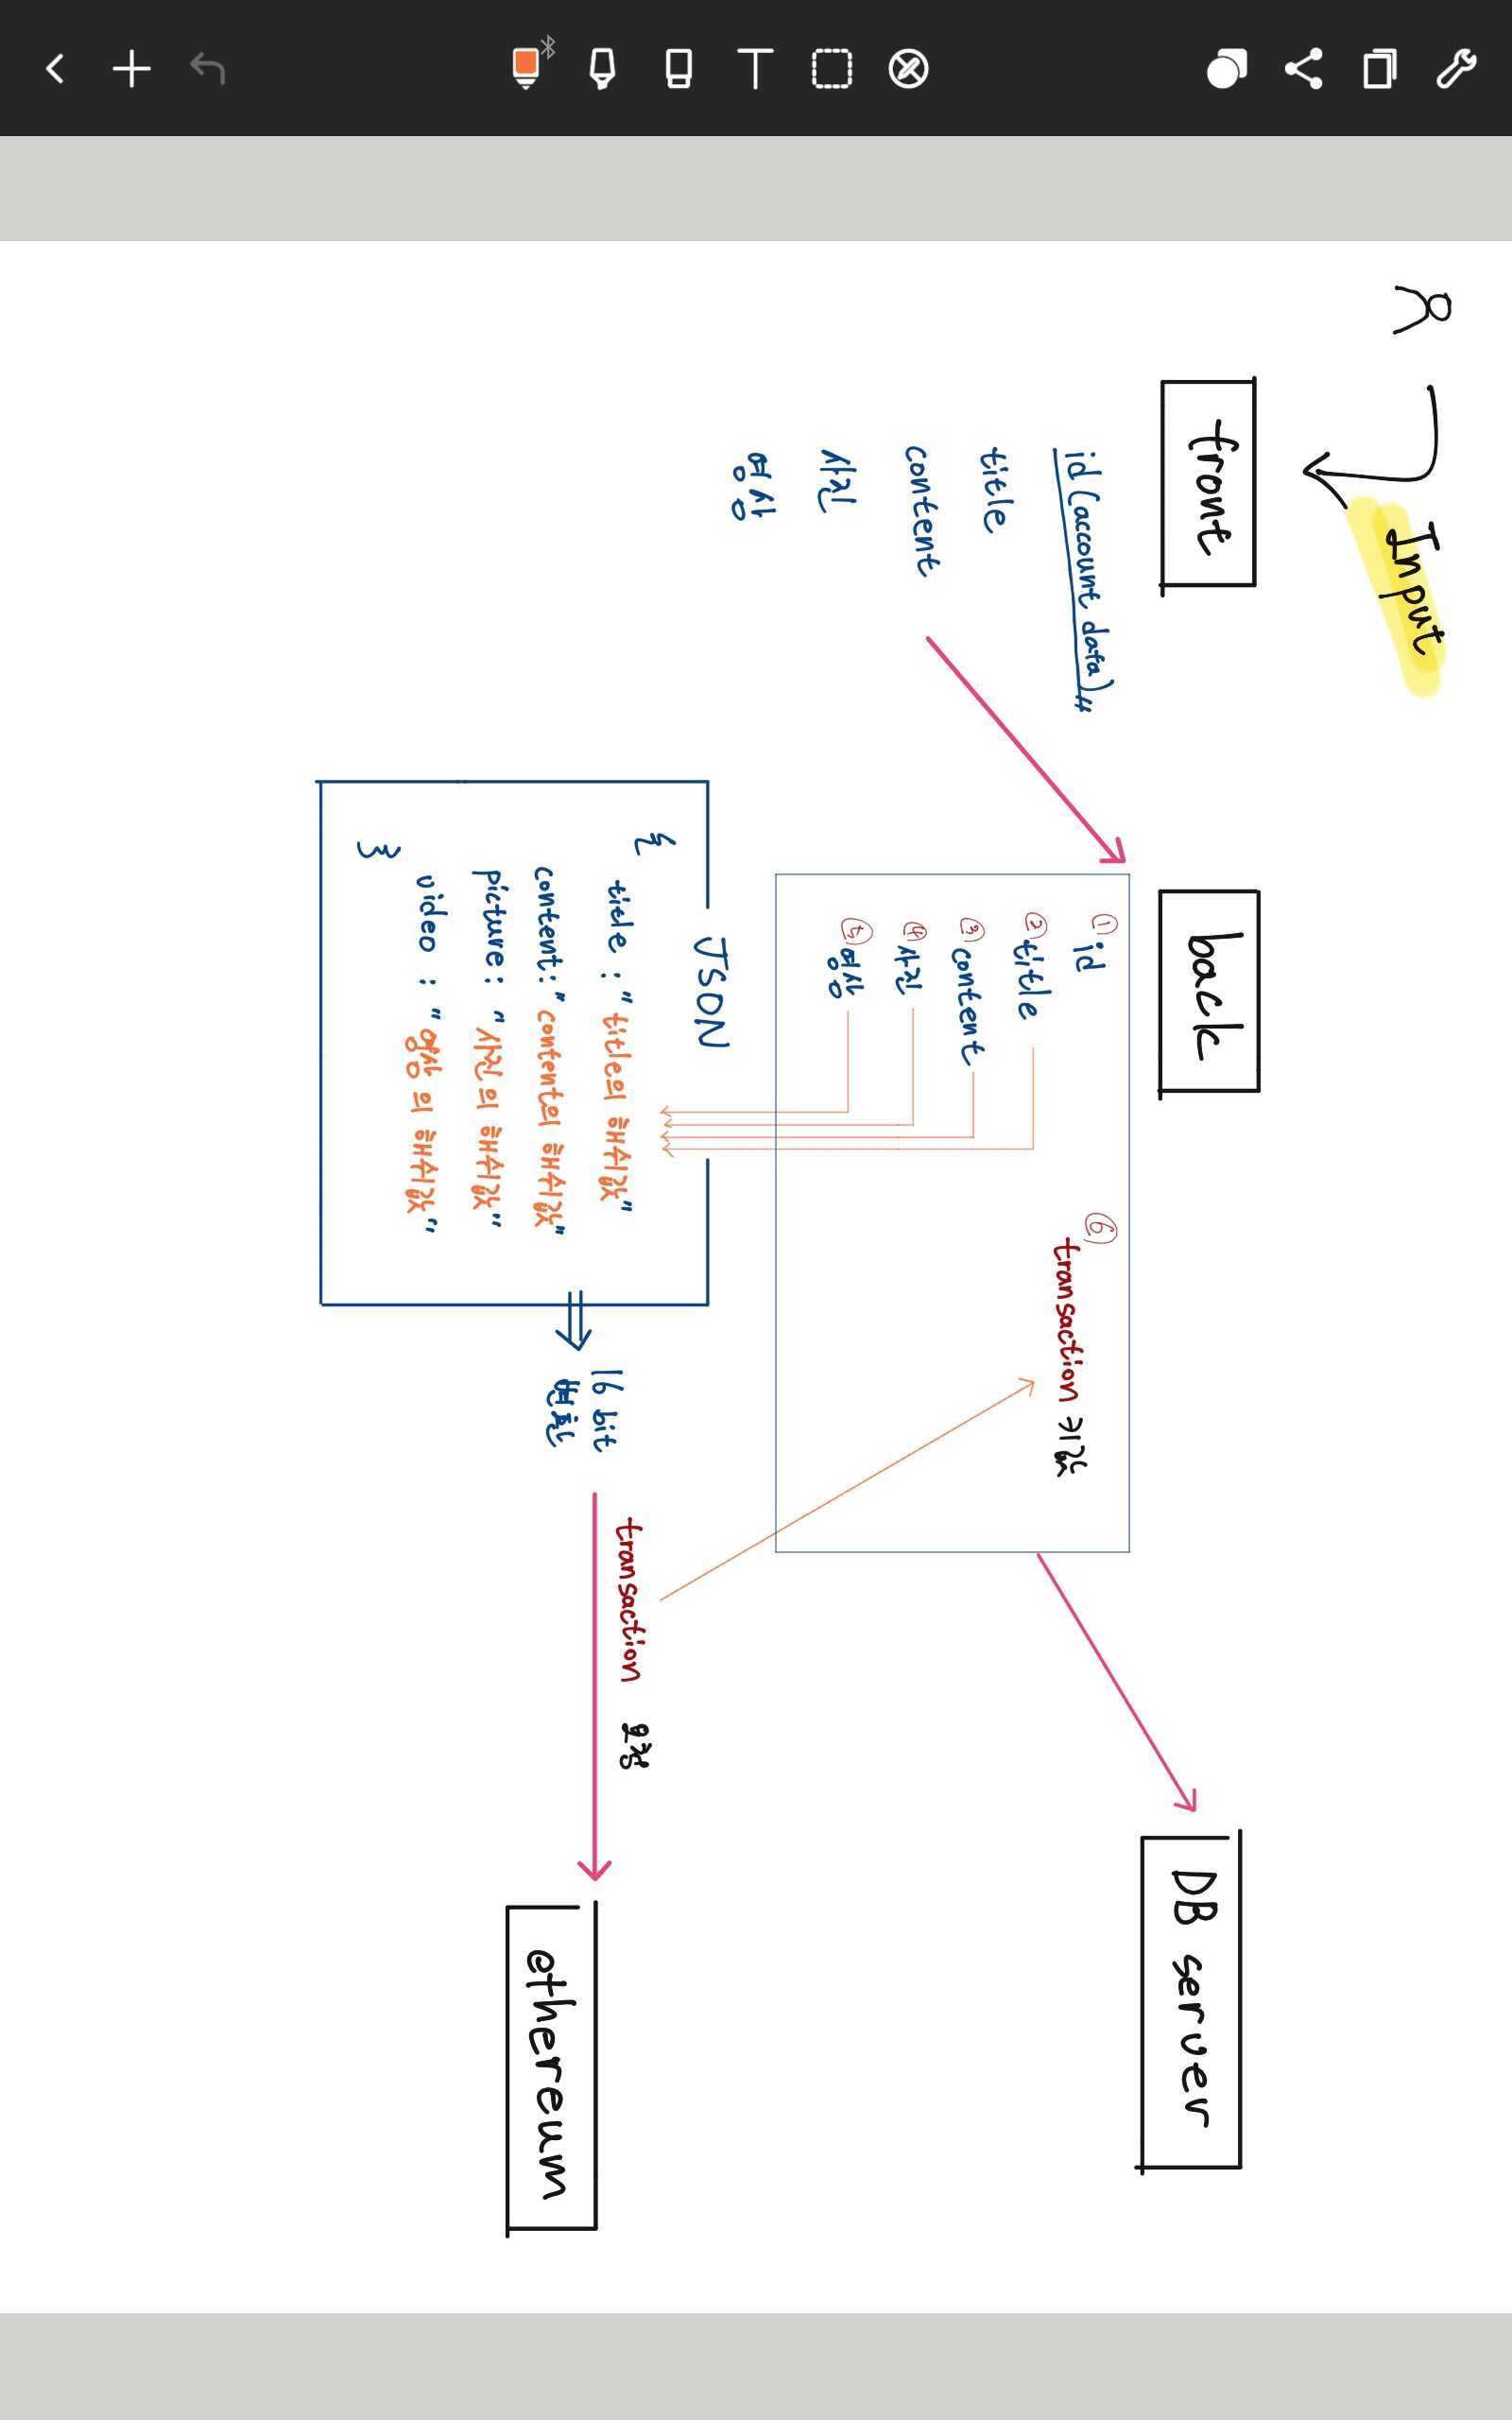 Input
front
id (account data)
title
content
사진
영상
back
① id
② title
③ content
④ 사진
⑤ 영상
⑥
transaction 키값
DB server
JSON
{
title : "title의 해쉬값"
content : "content의 해쉬값"
picture : "사진의 해쉬값"
video : "영상의 해쉬값"
}
16 bit
변환
transaction 요청
ethereum